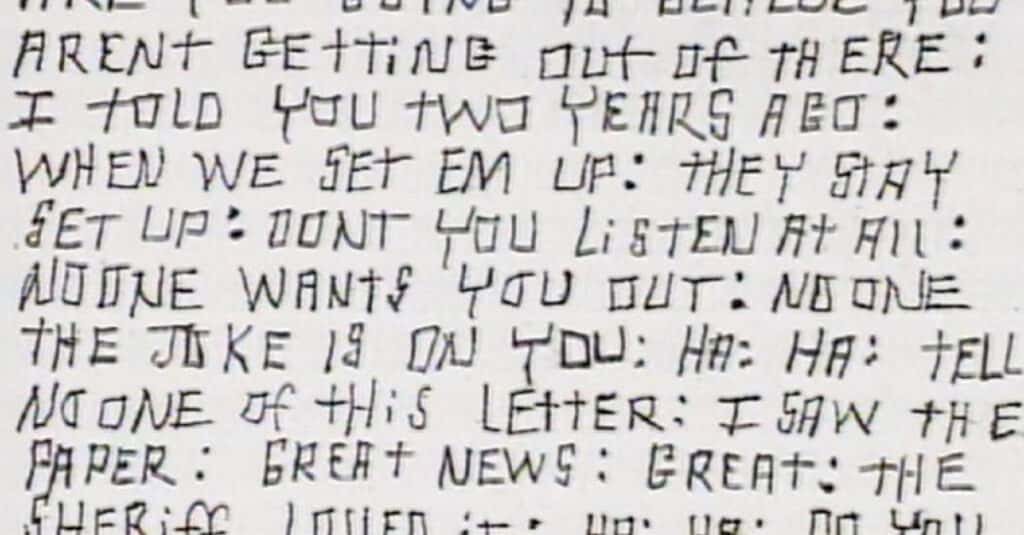 ARE YOU GOING TO BELIEVE YOU
ARENt GEttiNG OUt Of tHERE:
I tOLD YOU tWO YEARS AGO:
WHEN WE SEt EM UP: tHEY StAY
SET UP: DONT YOU LiStEN At All:
NOONE WANtS YOU OUT: NO ONE
tHE JOKE IS ON YOU: HA: HA: tELL
NO ONE Of tHiS LEttER: I SAW tHE
PAPER: GREAt NEWS: GREAt: tHE
SHERiff LOVED it: HA: HA: DO YOU